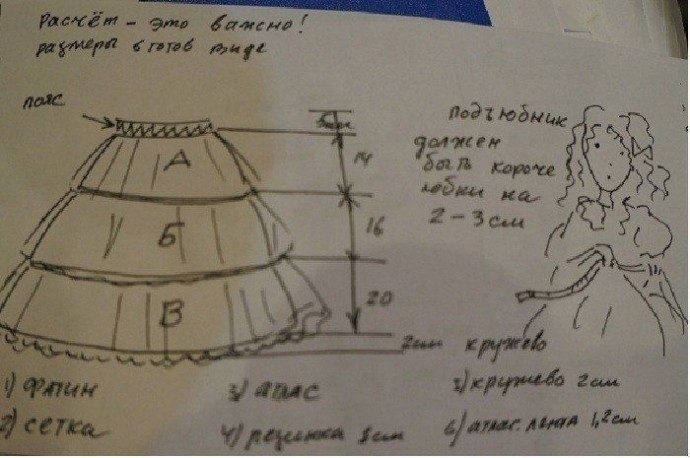 Расчёт - это важно!
размеры в готов виде
пояс
А
14
Б
16
В
20
2см кружево
подъюбник
должен
быть короче
юбки на
2-3 см
1) фатин
2) сетка
3) атлас
4) резинка
5) кружево 2см
6) атлас. лента 1,2см